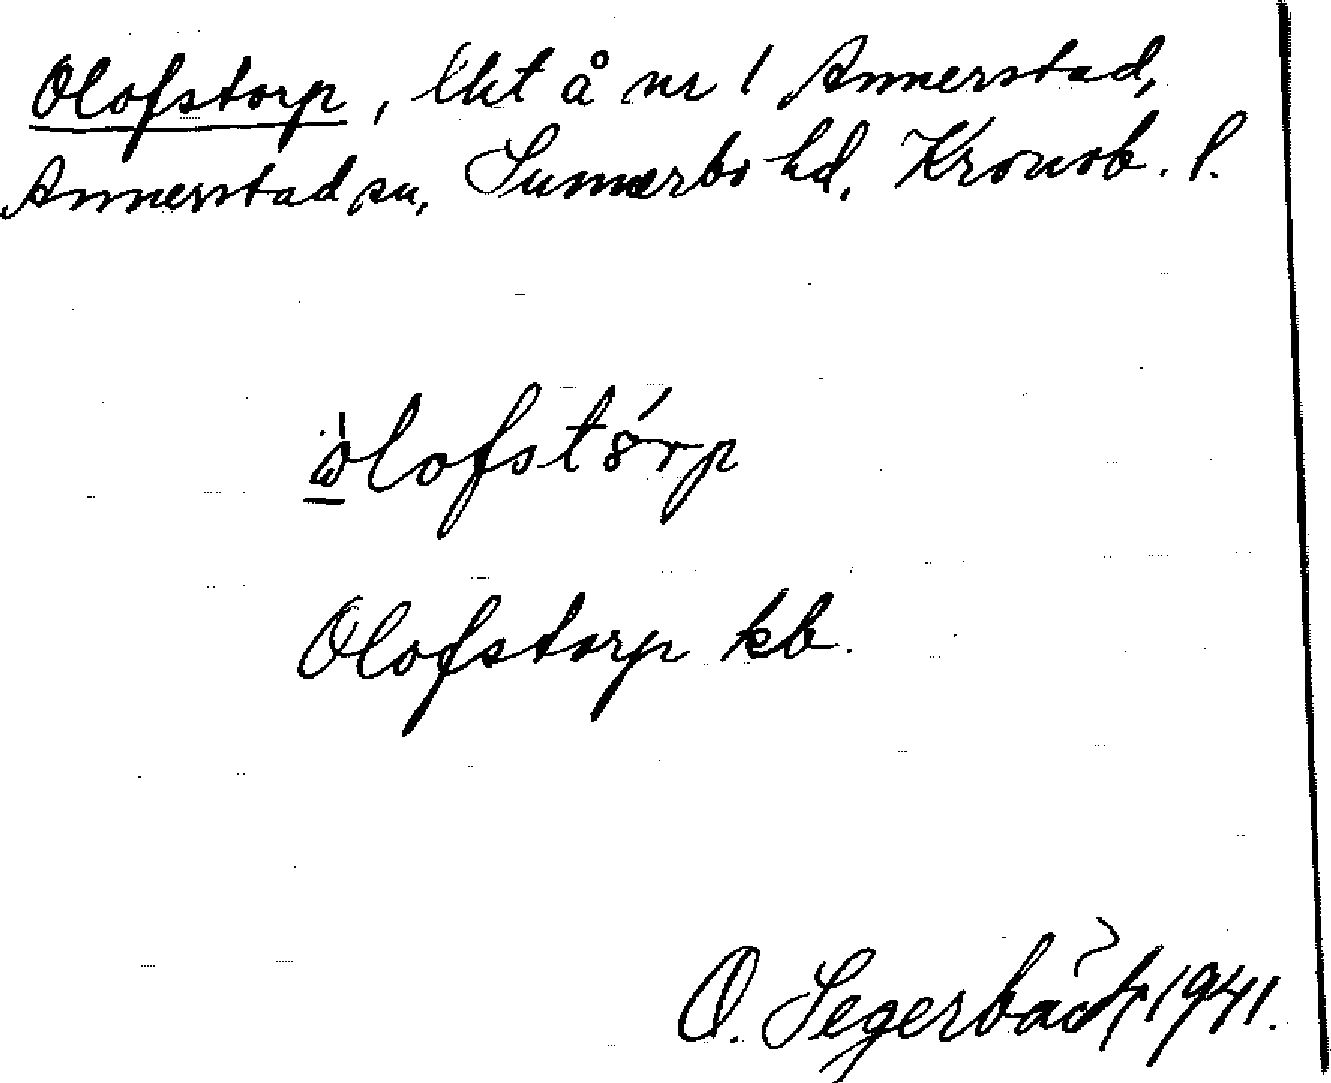 Olofstorp, lht å nr 1 Annerstad,
Annerstad sn, Sunnerbo hd, Kronob. l.
Olofstorp kb.
O. Segerbäck 1941.